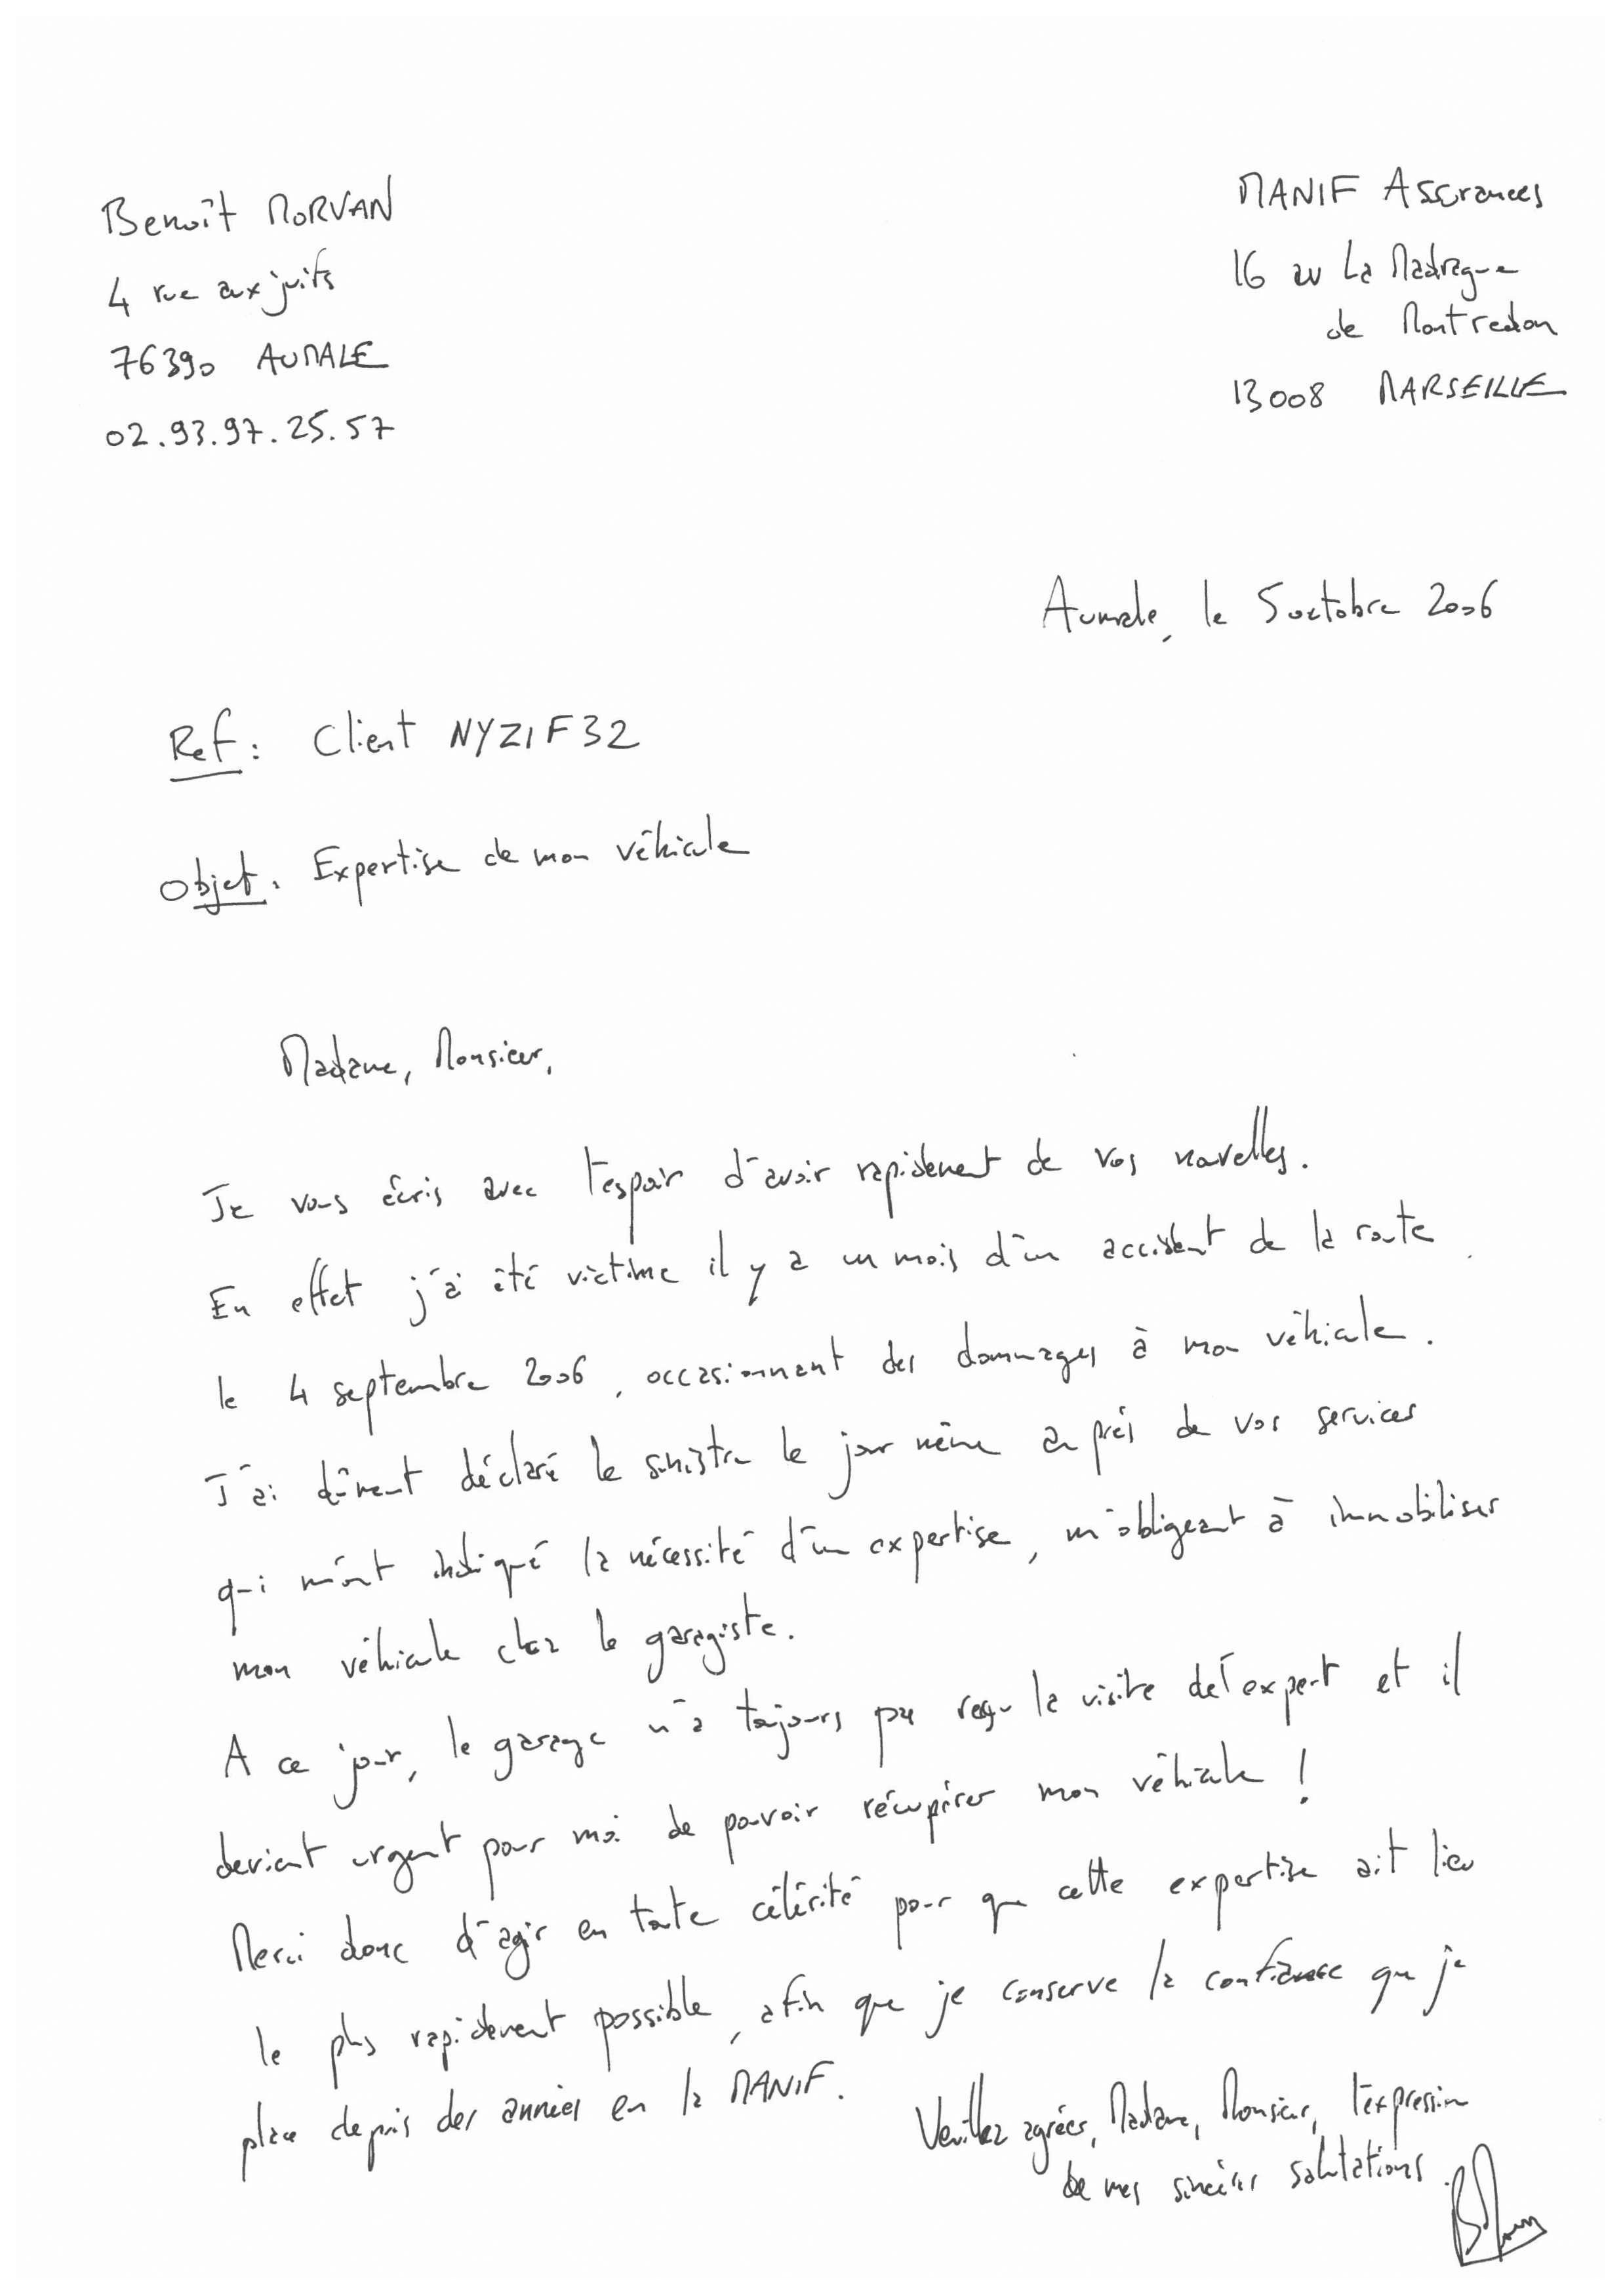 Benoît MORVAN
4 rue aux juifs
76390 AUMALE
02.93.97.25.57
MANIF Assurances
16 av La Madrague
de Montredon
13008 MARSEILLE
Aumale, le 5 octobre 2006
Ref : Client NYZIF32
Objet : Expertise de mon véhicule
Madame, Monsieur,
Je vous écris avec l'espoir d'avoir rapidement de vos nouvelles.
En effet j'ai été victime il y a un mois d'un accident de la route
le 4 septembre 2006, occasionnant des dommages à mon véhicule.
J'ai dûment déclaré le sinistre le jour même auprès de vos services
qui m'ont indiqué la nécessité d'un expertise, m'obligeant à immobiliser
mon véhicule chez le garagiste.
A ce jour, le garage n'a toujours pas reçu la visite de l'expert et il
devient urgent pour moi de pouvoir récupérer mon véhicule !
Merci donc d'agir en toute célérité pour que cette expertise ait lieu
le plus rapidement possible, afin que je conserve la confiance que je
place depuis des années en la MANIF.
Veuillez agréer, Madame, Monsieur, l'expression
de mes sincères salutations.